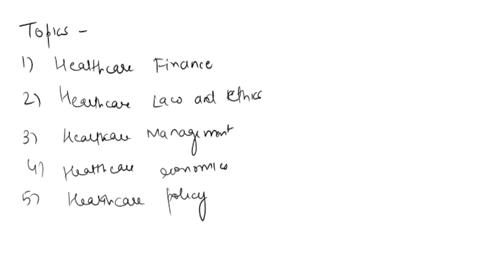 Topics -
1) Healthcare Finance
2) Healthcare Law and Ethics
3) Healthcare Management
4) Healthcare economics
5) Healthcare policy